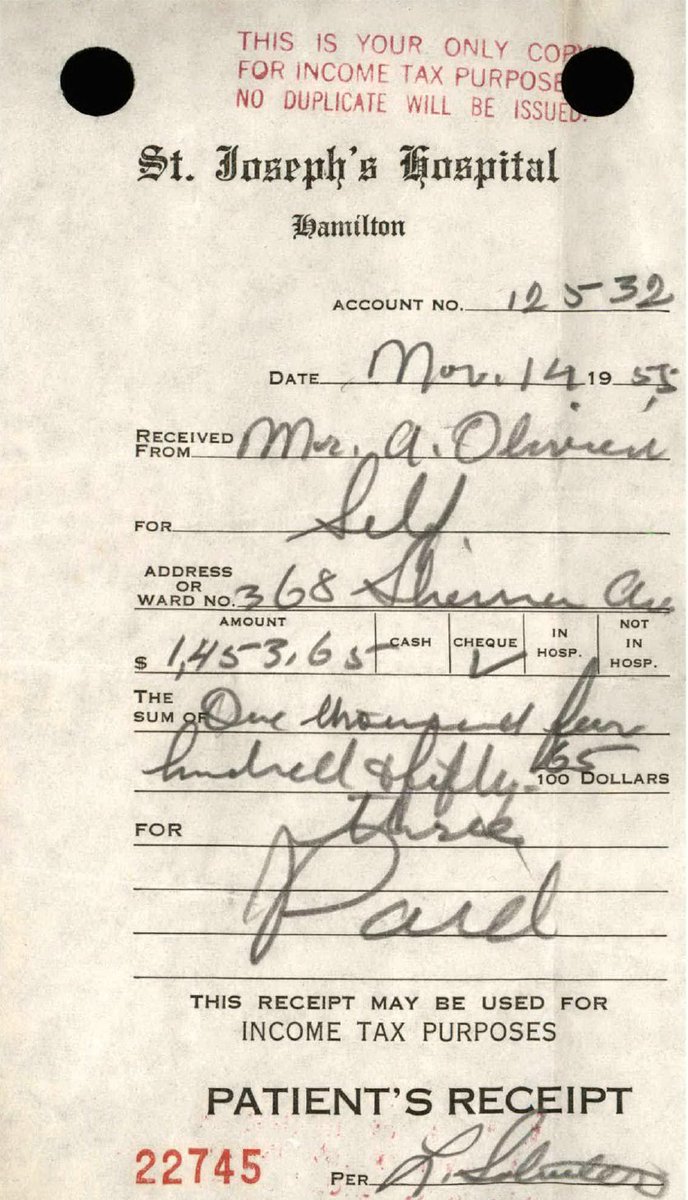 THIS IS YOUR ONLY COPY
FOR INCOME TAX PURPOSE
NO DUPLICATE WILL BE ISSUED.
St. Joseph's Hospital
Hamilton
ACCOUNT NO. 12532
DATE Nov. 14 19 55
RECEIVED FROM Mr. A.
FOR Self
ADDRESS OR WARD NO. 368 Ave
AMOUNT CASH CHEQUE ✓ IN HOSP. NOT IN HOSP.
$ 1,453.65
THE SUM OF One thousand four
hundred & fifty- 65/100 DOLLARS
FOR three
Paid
THIS RECEIPT MAY BE USED FOR
INCOME TAX PURPOSES
PATIENT'S RECEIPT
22745 PER L.